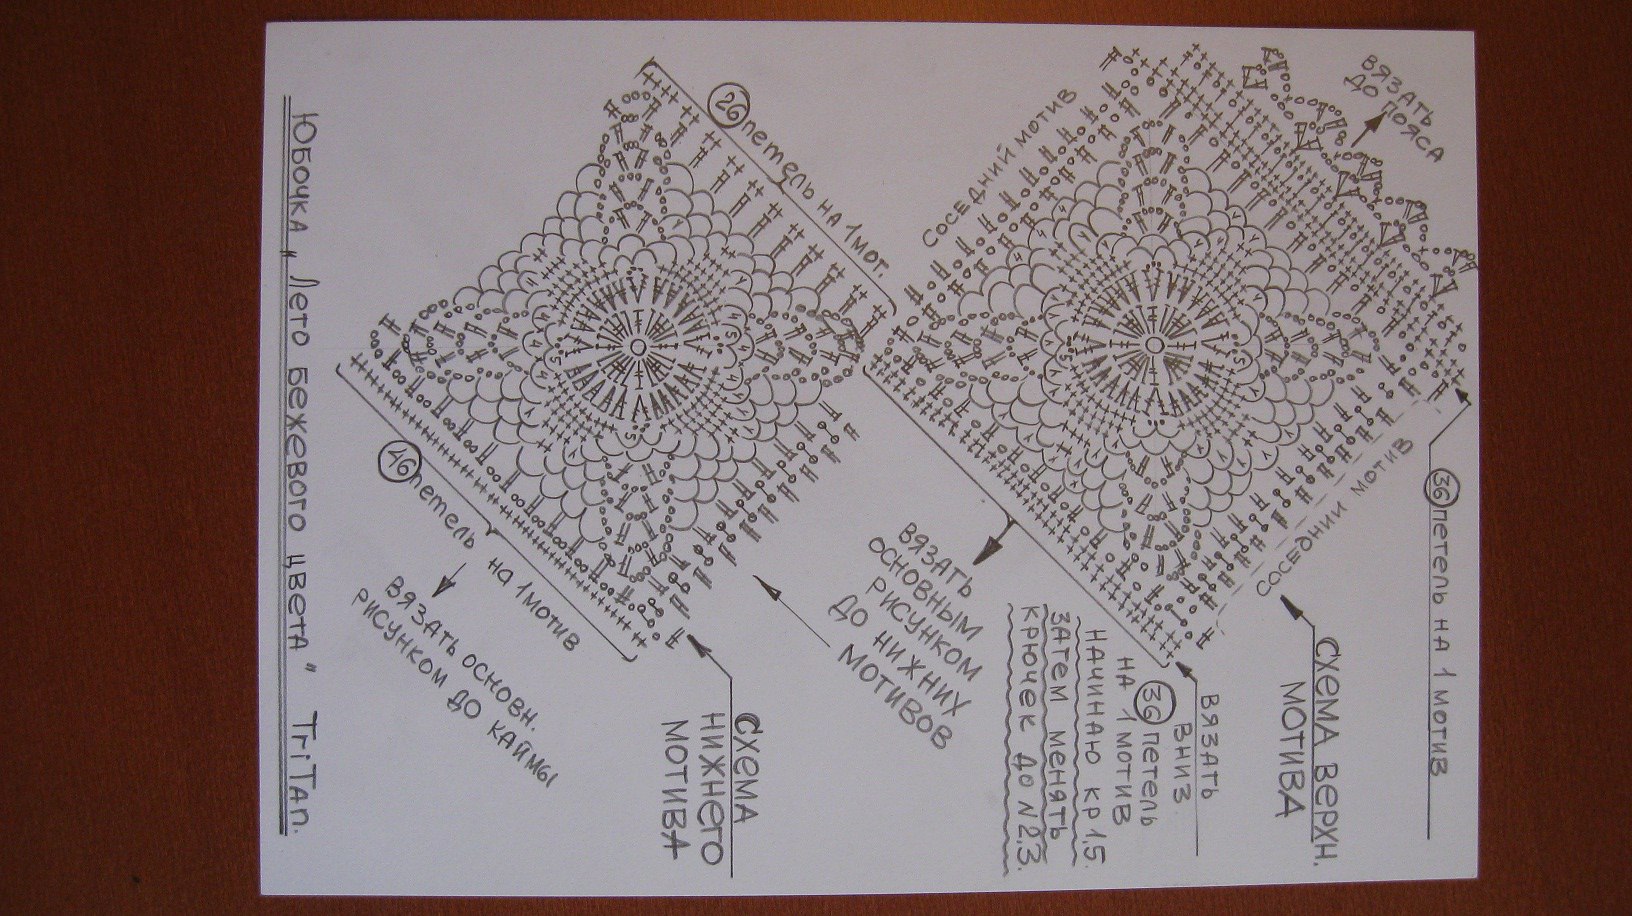 ВЯЗАТЬ
ДО ПОЯСА
36 ПЕТЕЛЬ НА 1 МОТИВ
СОСЕДНИЙ МОТИВ
СОСЕДНИЙ МОТИВ
СХЕМА ВЕРХН.
МОТИВА
ВЯЗАТЬ
ВНИЗ
36 ПЕТЕЛЬ
НА 1 МОТИВ
НАЧИНАЮ КР 1,5.
ЗАТЕМ МЕНЯТЬ
КРЮЧЕК ДО N2,3.
ВЯЗАТЬ
ОСНОВНЫМ
РИСУНКОМ
ДО НИЖНИХ
МОТИВОВ
26 петель на 1 мот.
СХЕМА
НИЖНЕГО
МОТИВА
46 петель на 1 мотив
ВЯЗАТЬ ОСНОВН.
РИСУНКОМ ДО КАЙМЫ
Юбочка „Лето бежевого цвета" TriTan.